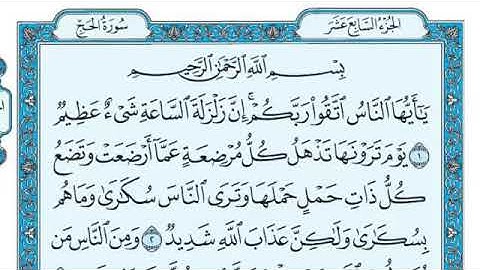 الجزء السابع عشر
سورة الحج
بِسْمِ اللَّهِ الرَّحْمَٰنِ الرَّحِيمِ
يَا أَيُّهَا النَّاسُ اتَّقُوا رَبَّكُمْ ۚ إِنَّ زَلْزَلَةَ السَّاعَةِ شَيْءٌ عَظِيمٌ
١ يَوْمَ تَرَوْنَهَا تَذْهَلُ كُلُّ مُرْضِعَةٍ عَمَّا أَرْضَعَتْ وَتَضَعُ
كُلُّ ذَاتِ حَمْلٍ حَمْلَهَا وَتَرَى النَّاسَ سُكَارَىٰ وَمَا هُم
بِسُكَارَىٰ وَلَٰكِنَّ عَذَابَ اللَّهِ شَدِيدٌ ٢ وَمِنَ النَّاسِ مَن